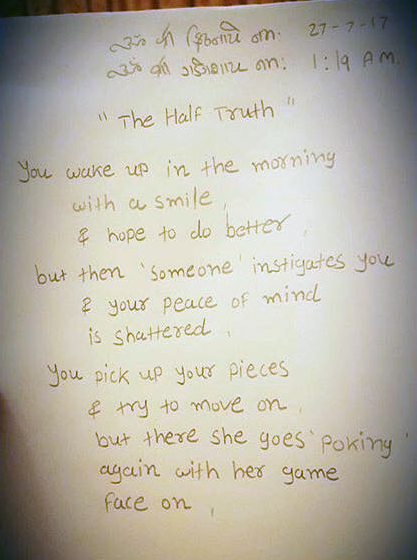 ૐ શ્રી નમ: 27-7-17
ૐ શ્રી ગણેશાય નમ: 1:19 AM.
"The Half Truth"
You wake up in the morning
with a smile,
& hope to do better,
but then 'someone' instigates you
& your peace of mind
is shattered,
You pick up your pieces
& try to move on,
but there she goes 'Poking'
again with her game
face on,